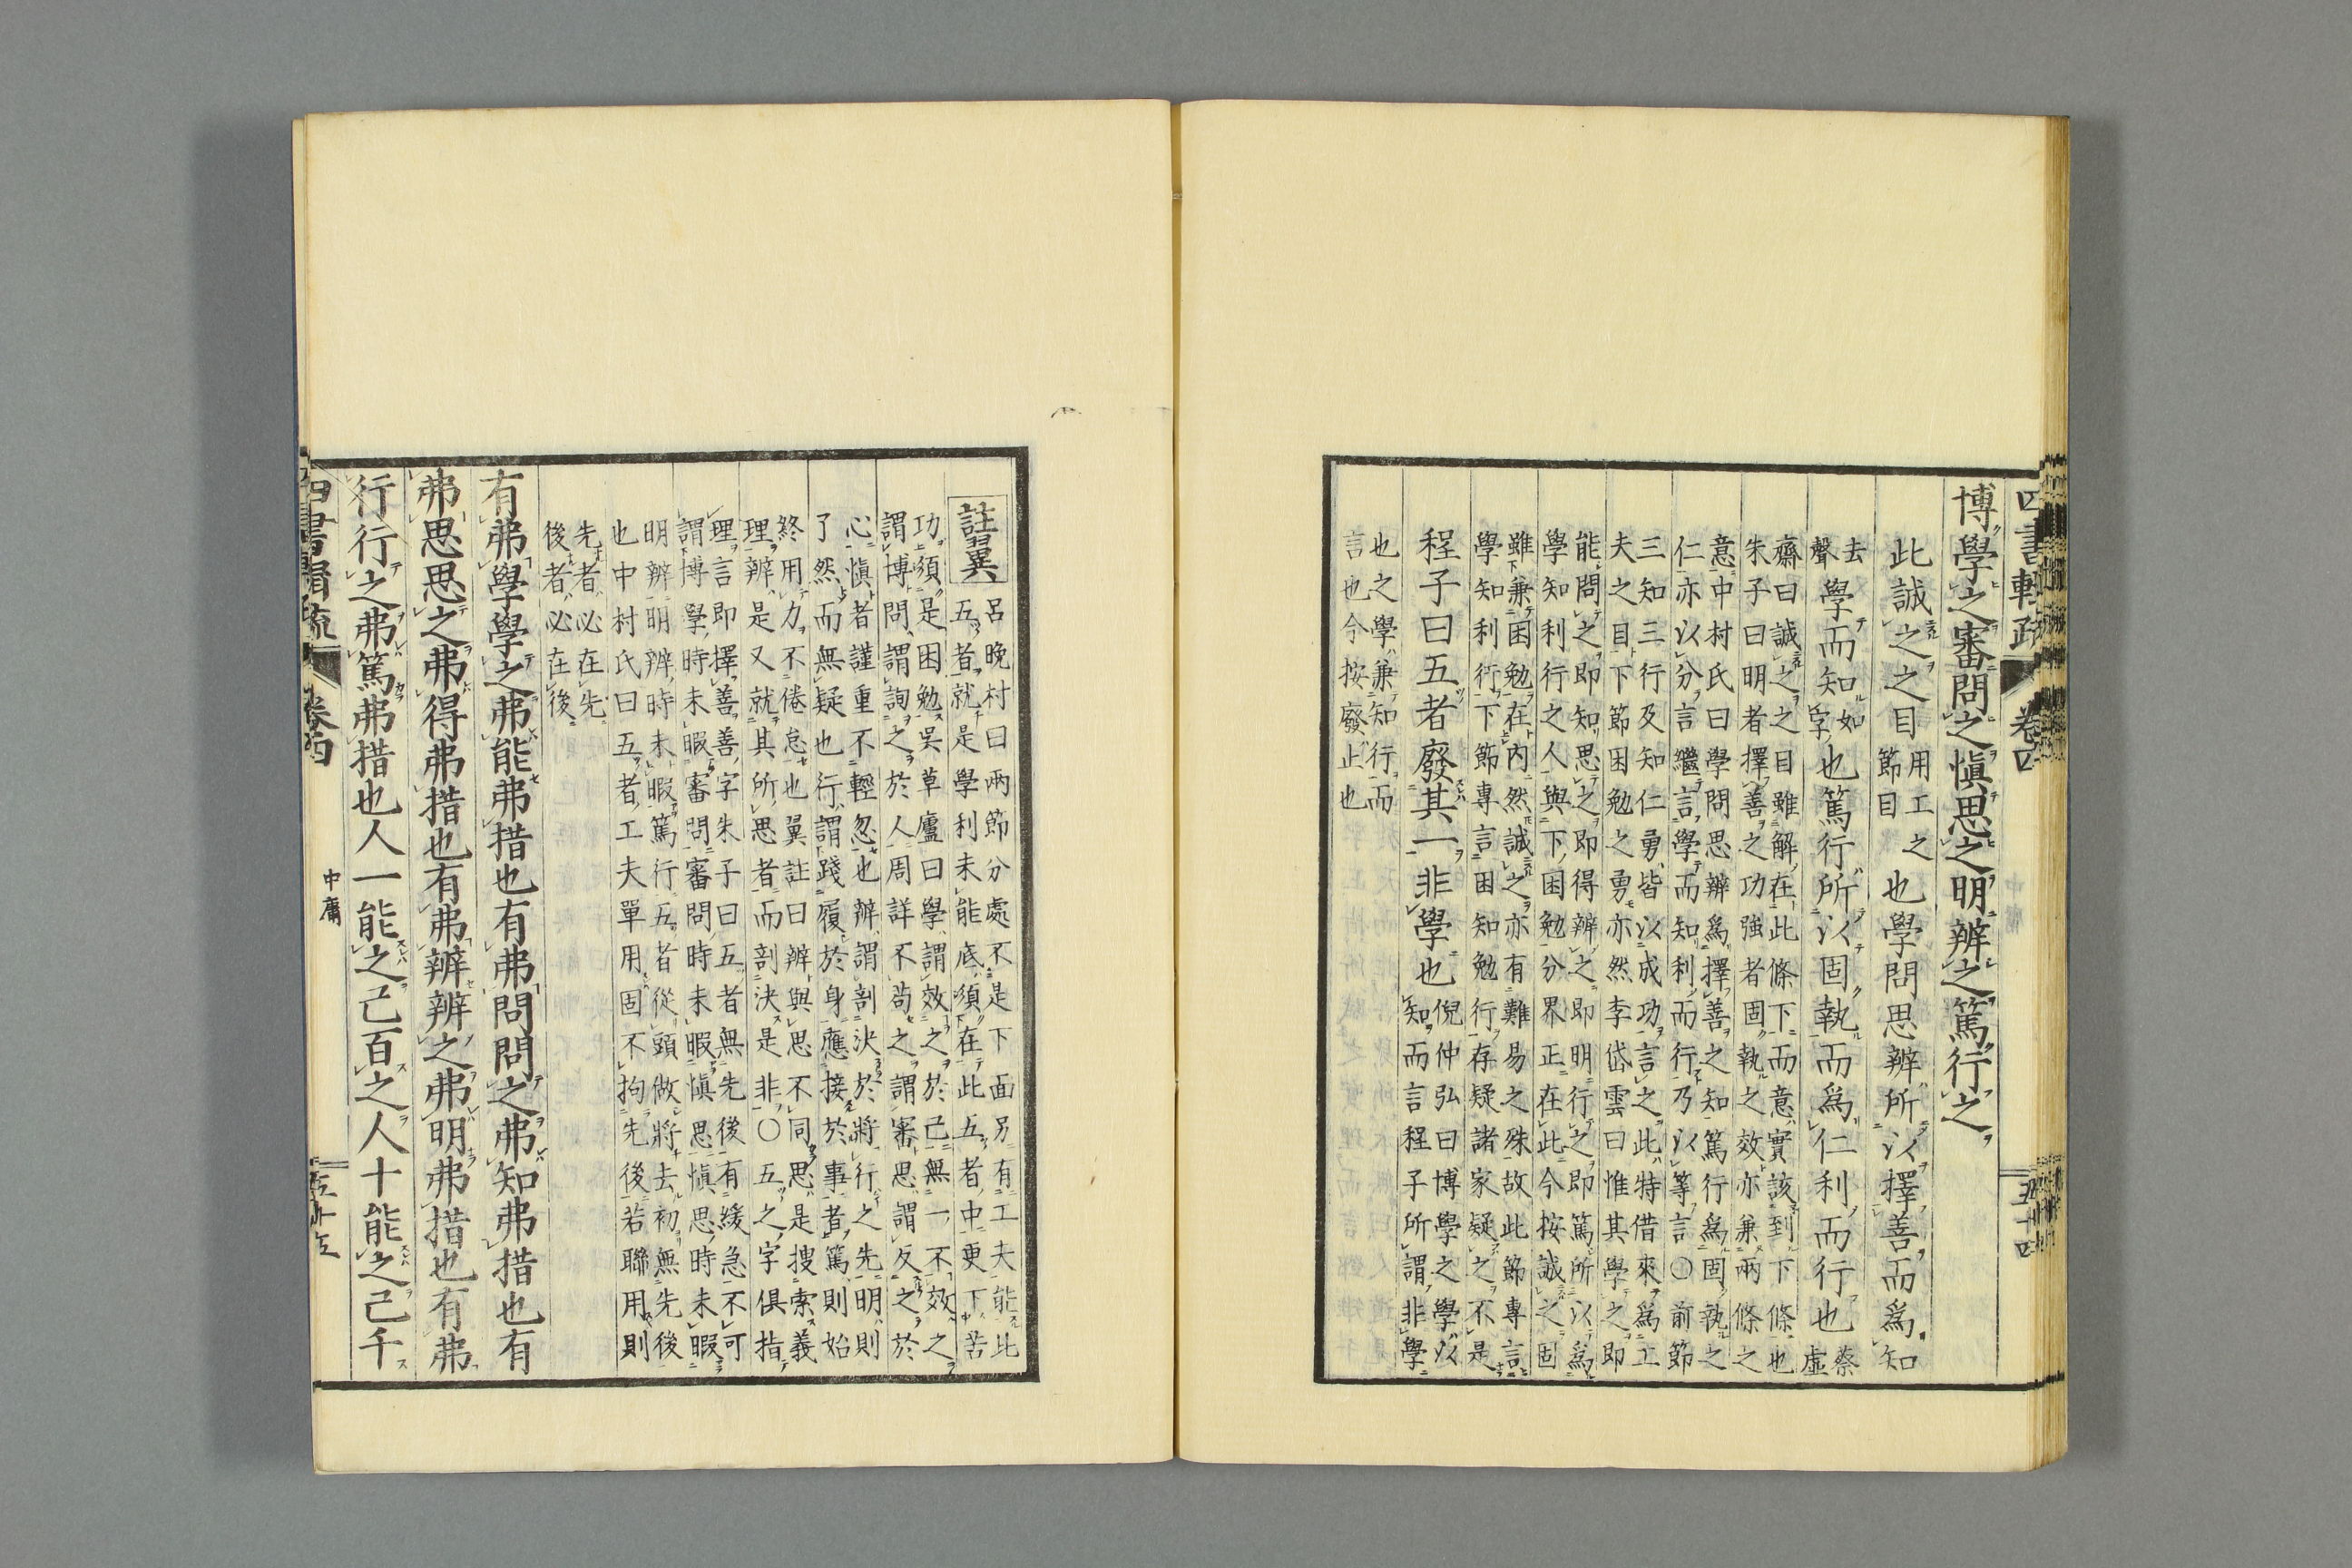 博學之審問之愼思之明辨之篤行之
此誠之之目
用工之
節目
也學問思辨所以擇善而爲知
去
聲
學而知
如
字
也篤行所以固執而爲仁利而行也
蔡
虛
齋曰誠之之目雖解在此條下而意實該到下條也
朱子曰明者擇善之功強者固執之效亦兼兩條之
意中村氏曰學問思辨爲擇善之知篤行爲固執之
仁亦以分言繼言學而知利而行乃以等言〇前節
三知三行及知仁勇皆以成功言之此特借來爲工
夫之目下節困勉之勇亦然李岱雲曰惟其學之即
能問之即知思之即得辨之即明行之即篤所以爲
學知利行之人與下困勉分界正在此今按誠之固
雖兼困勉在內然誠之亦有難易之殊故此節專言
學知利行下節專言困知勉行存疑諸家疑之不是
程子曰五者廢其一非學也
倪仲弘曰博學之學以
知而言程子所謂非學
也之學兼知行而
言也今按廢止也
四書輯疏 卷四 五十四
註翼
呂晚村曰兩節分處不是下面另有工夫能此
五者就是學利未能底須在此五者中更下苦
功須是困勉吳草廬曰學謂效之於己無一不效之
謂博問謂詢之於人周詳不苟之謂審思謂反之於
心愼者謹重不輕忽也辨謂剖決於將行之先明則
了然而無疑也行謂踐履於身應接於事者篤則始
終用力不倦怠也翼註曰辨與思不同思是搜索義
理辨是又就其所思者而剖決是非〇五之字俱指
理言即擇善善字朱子曰五者無先後有緩急不可
謂博學時未暇審問審問時未暇愼思愼思時未暇
明辨明辨時未暇篤行五者從頭做將去初無先後
也中村氏曰五者工夫單用固不拘先後若聯用則
先者必在先
後者必在後
有弗學學之弗能弗措也有弗問問之弗知弗措也有
弗思思之弗得弗措也有弗辨辨之弗明弗措也有弗
行行之弗篤弗措也人一能之己百之人十能之己千
四書輯疏 卷四 中庸 五十五